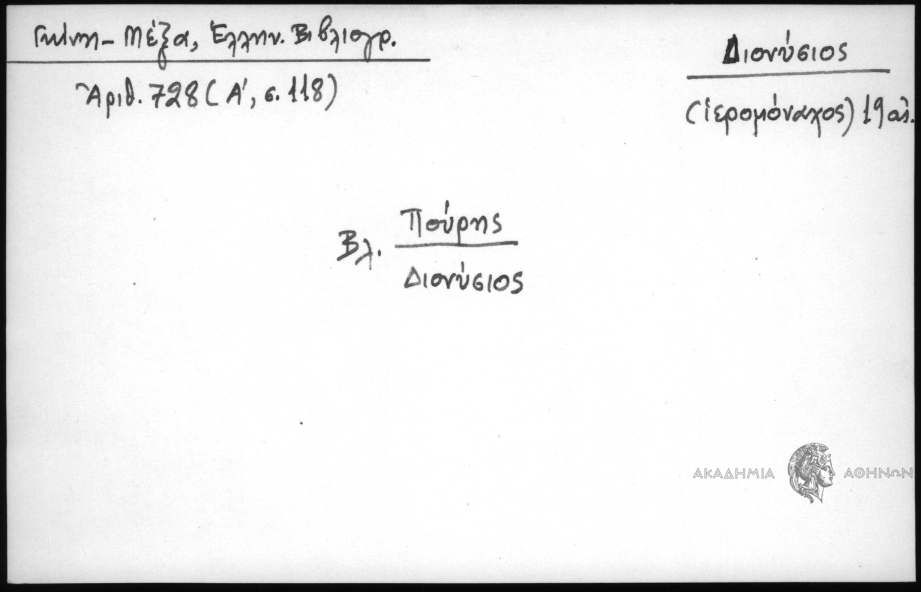 Γκίνη - Μέξα, Ἑλλην. Βιβλιογρ.
Ἀριθ. 728 (Α', σ. 118)
Διονύσιος
(ἱερομόναχος) 19 αἰ.
Βλ. Πούρης
Διονύσιος
ΑΚΑΔΗΜΙΑ ΑΘΗΝΩΝ